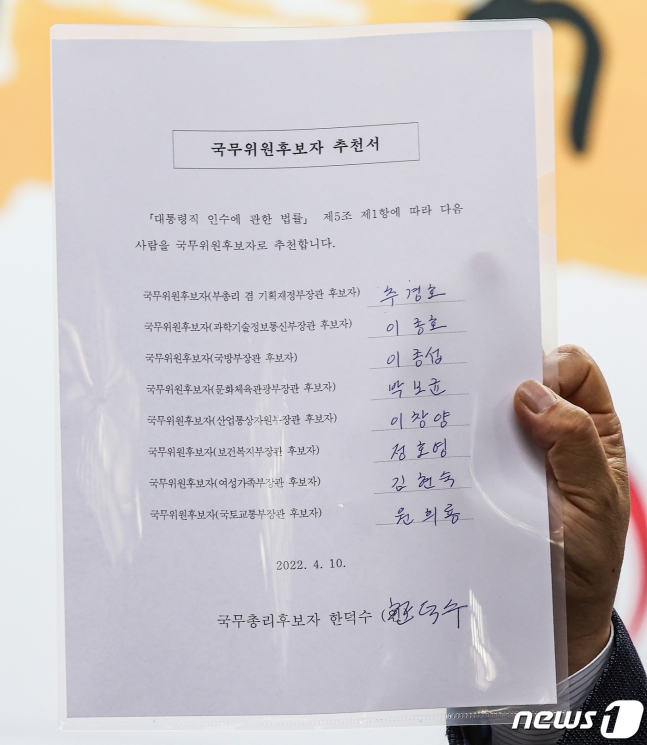 국무위원후보자 추천서
「대통령직 인수에 관한 법률」 제5조 제1항에 따라 다음
사람을 국무위원후보자로 추천합니다.
국무위원후보자(부총리 겸 기획재정부장관 후보자) 추경호
국무위원후보자(과학기술정보통신부장관 후보자) 이종호
국무위원후보자(국방부장관 후보자) 이종섭
국무위원후보자(문화체육관광부장관 후보자) 박보균
국무위원후보자(산업통상자원부장관 후보자) 이창양
국무위원후보자(보건복지부장관 후보자) 정호영
국무위원후보자(여성가족부장관 후보자) 김현숙
국무위원후보자(국토교통부장관 후보자) 원희룡
2022. 4. 10.
국무총리후보자 한덕수 (한덕수
news1